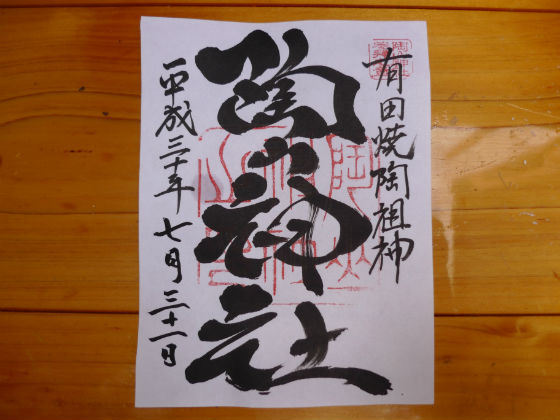 有田焼陶祖神
陶山神社
平成三十年七月三十一日